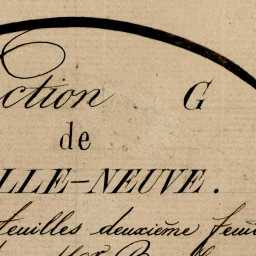 ction G
de
LLE-NEUVE.
feuilles deuxième feui